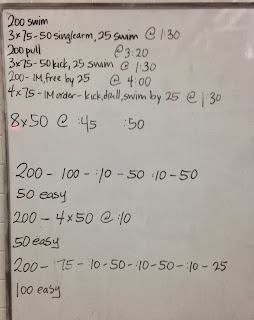 200 swim
3x75-50 single arm, 25 swim @ 1:30
200 pull @ 3:20
3x75-50 kick, 25 swim @ 1:30
200-IM, free by 25 @ 4:00
4x75-IM order-kick, drill, swim by 25 @ 1:30
8x50 @ :45 :50
200-100-:10-50 :10-50
50 easy
200-4x50 @ :10
50 easy
200-75-:10-50-:10-50-:10-25
100 easy